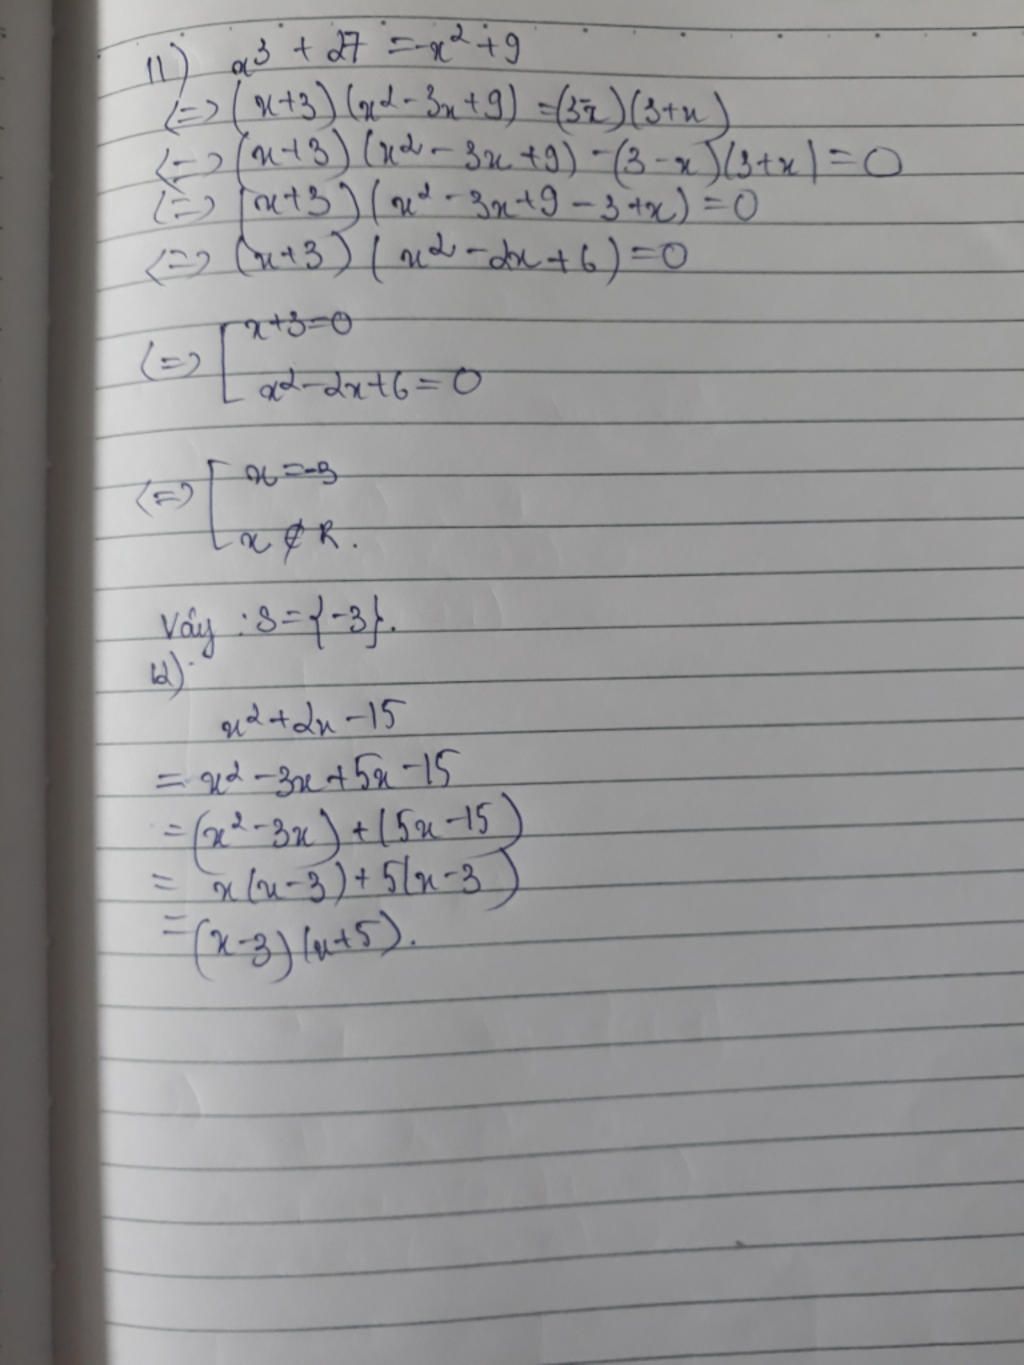 11) x³ + 27 = -x² + 9
<=> (x+3)(x² - 3x + 9) = (3-x)(3+x)
<=> (x+3)(x² - 3x + 9) - (3-x)(3+x) = 0
<=> (x+3)(x² - 3x + 9 - 3 + x) = 0
<=> (x+3)(x² - 2x + 6) = 0
<=> [ x+3=0
x² - 2x + 6 = 0
<=> [ x = -3
x ∉ R.
Vậy : S = {-3}.
12)
x² + 2x - 15
= x² - 3x + 5x - 15
= (x² - 3x) + (5x - 15)
= x(x - 3) + 5(x - 3)
= (x - 3)(x + 5).